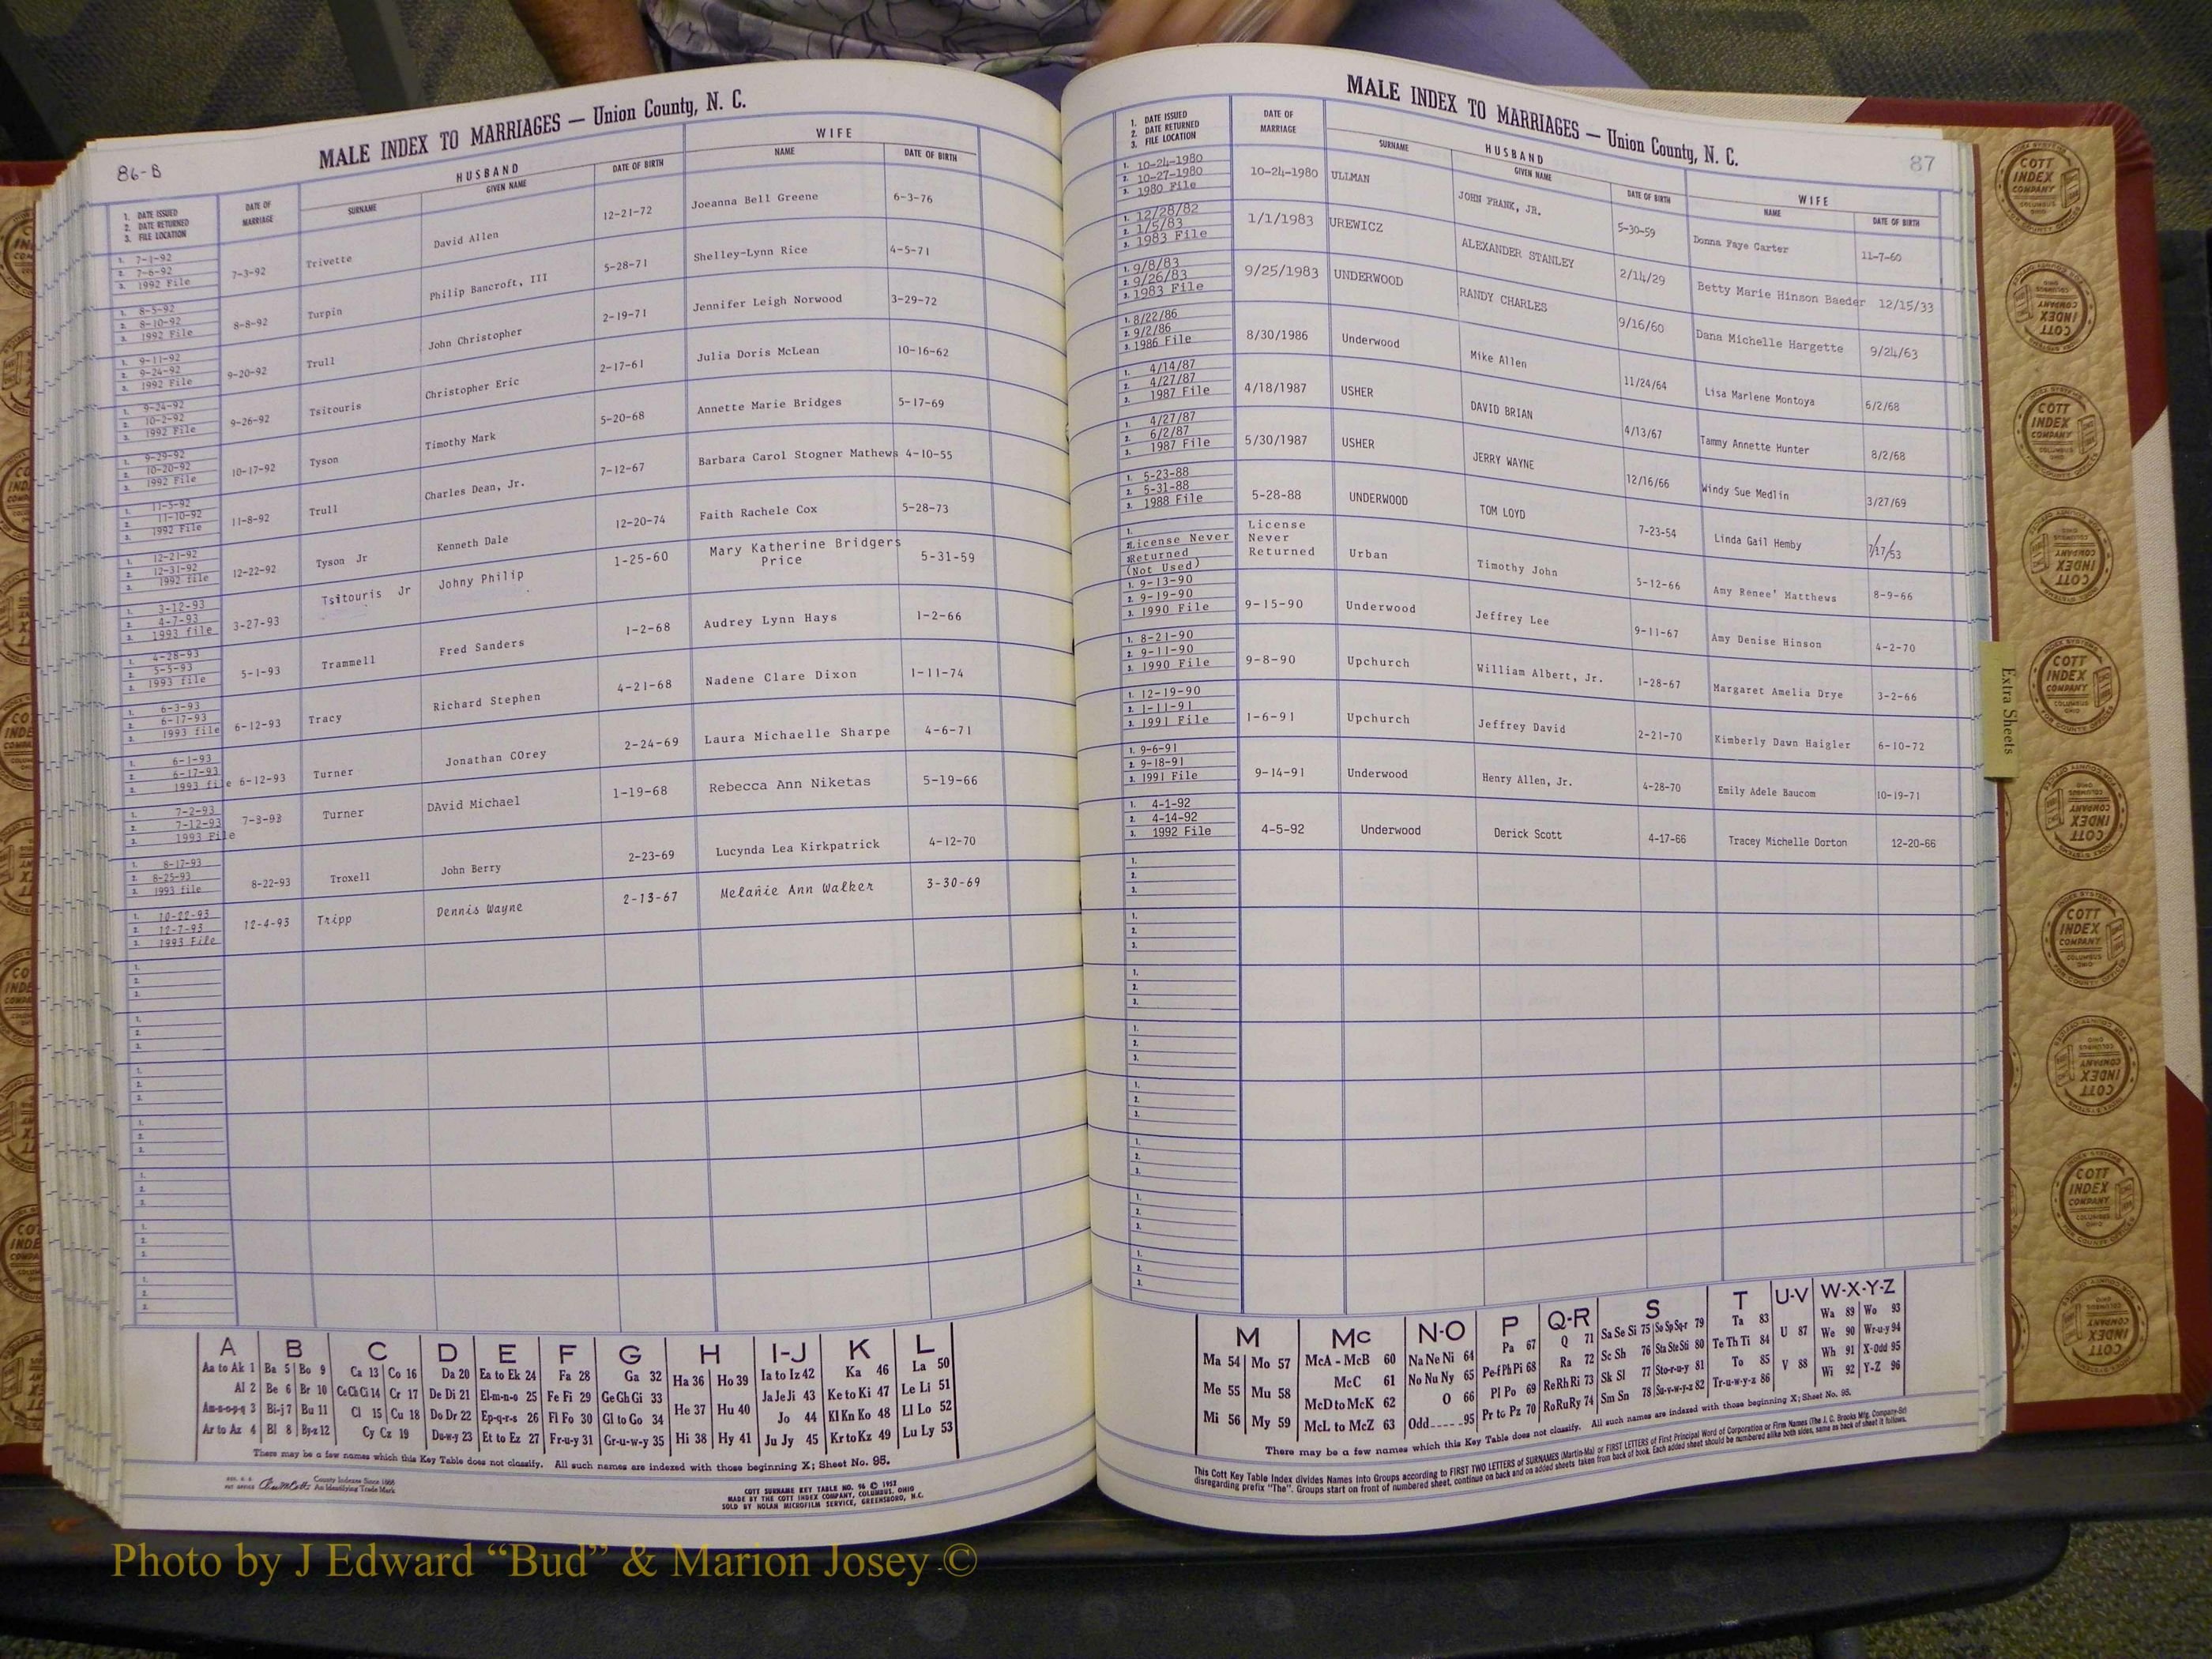 86-B
MALE INDEX TO MARRIAGES — Union County, N. C.
1. DATE ISSUED 2. DATE RETURNED 3. FILE LOCATION
DATE OF MARRIAGE
HUSBAND
SURNAME GIVEN NAME DATE OF BIRTH
WIFE
NAME DATE OF BIRTH
1. 7-1-92
2. 7-6-92
3. 1992 File
7-3-92 Trivette David Allen 12-21-72 Joeanna Bell Greene 6-3-76
1. 8-5-92
2. 8-10-92
3. 1992 File
8-8-92 Turpin Philip Bancroft, III 5-28-71 Shelley-Lynn Rice 4-5-71
1. 9-11-92
2. 9-24-92
3. 1992 File
9-20-92 Trull John Christopher 2-19-71 Jennifer Leigh Norwood 3-29-72
1. 9-24-92
2. 10-2-92
3. 1992 File
9-26-92 Tsitouris Christopher Eric 2-17-61 Julia Doris McLean 10-16-62
1. 9-29-92
2. 10-20-92
3. 1992 File
10-17-92 Tyson Timothy Mark 5-20-68 Annette Marie Bridges 5-17-69
1. 11-5-92
2. 11-10-92
3. 1992 File
11-8-92 Trull Charles Dean, Jr. 7-12-67 Barbara Carol Stogner Mathews 4-10-55
1. 12-21-92
2. 12-31-92
3. 1992 file
12-22-92 Tyson Jr Kenneth Dale 12-20-74 Faith Rachele Cox 5-28-73
1. 3-12-93
2. 4-7-93
3. 1993 file
3-27-93 Tsitouris Jr Johny Philip 1-25-60 Mary Katherine Bridgers Price 5-31-59
1. 4-28-93
2. 5-5-93
3. 1993 file
5-1-93 Trammell Fred Sanders 1-2-68 Audrey Lynn Hays 1-2-66
1. 6-3-93
2. 6-17-93
3. 1993 file
6-12-93 Tracy Richard Stephen 4-21-68 Nadene Clare Dixon 1-11-74
1. 6-1-93
2. 6-17-93
3. 1993 file
6-12-93 Turner Jonathan COrey 2-24-69 Laura Michaelle Sharpe 4-6-71
1. 7-2-93
2. 7-12-93
3. 1993 File
7-3-93 Turner DAvid Michael 1-19-68 Rebecca Ann Niketas 5-19-66
1. 8-17-93
2. 8-25-93
3. 1993 file
8-22-93 Troxell John Berry 2-23-69 Lucynda Lea Kirkpatrick 4-12-70
1. 10-22-93
2. 12-7-93
3. 1993 File
12-4-93 Tripp Dennis Wayne 2-13-67 Melanie Ann Walker 3-30-69
A B C D E F G H I-J K L
Aa to Ak 1 Ba 5 Bo 9 Ca 13 Co 16 Da 20 Ea to Ek 24 Fa 28 Ga 32 Ha 36 Ho 39 Ia to Iz 42 Ka 46 La 50
Al 2 Be 6 Br 10 Ce Ch Ci 14 Cr 17 De Di 21 El-m-n-o 25 Fe Fi 29 Ge Gh Gi 33 He 37 Hu 40 Ja Je Ji 43 Ke to Ki 47 Le Li 51
Am-n-o-p-q 3 Bi-j 7 Bu 11 Cl 15 Cu 18 Do Dr 22 Ep-q-r-s 26 Fl Fo 30 Gl to Go 34 Hi 38 Hy 41 Jo 44 Kl Kn Ko 48 Ll Lo 52
Ar to Az 4 Bl 8 By-z 12 Cy Cz 19 Du-w-y 23 Et to Ez 27 Fr-u-y 31 Gr-u-w-y 35 Ju Jy 45 Kr to Kz 49 Lu Ly 53
There may be a few names which this Key Table does not classify. All such names are indexed with those beginning X; Sheet No. 95.
County Indexes Since 1888
An Identifying Trade Mark
COTT SURNAME KEY TABLE NO. 96 © 1957
MADE BY THE COTT INDEX COMPANY, COLUMBUS, OHIO
SOLD BY NOLAN MICROFILM SERVICE, GREENSBORO, N.C.
MALE INDEX TO MARRIAGES — Union County, N. C.
87
1. DATE ISSUED 2. DATE RETURNED 3. FILE LOCATION
DATE OF MARRIAGE
HUSBAND
SURNAME GIVEN NAME DATE OF BIRTH
WIFE
NAME DATE OF BIRTH
1. 10-24-1980
2. 10-27-1980
3. 1980 File
10-24-1980 ULLMAN JOHN FRANK, JR. 5-30-59 Donna Faye Carter 11-7-60
1. 12/28/82
2. 1/5/83
3. 1983 File
1/1/1983 UREWICZ ALEXANDER STANLEY 2/14/29 Betty Marie Hinson Baeder 12/15/33
1. 9/8/83
2. 9/26/83
3. 1983 File
9/25/1983 UNDERWOOD RANDY CHARLES 9/16/60 Dana Michelle Hargette 9/24/63
1. 8/22/86
2. 9/2/86
3. 1986 File
8/30/1986 Underwood Mike Allen 11/24/64 Lisa Marlene Montoya 6/2/68
1. 4/14/87
2. 4/27/87
3. 1987 File
4/18/1987 USHER DAVID BRIAN 4/13/67 Tammy Annette Hunter 8/2/68
1. 4/27/87
2. 6/2/87
3. 1987 File
5/30/1987 USHER JERRY WAYNE 12/16/66 Windy Sue Medlin 3/27/69
1. 5-23-88
2. 5-31-88
3. 1988 File
5-28-88 UNDERWOOD TOM LOYD 7-23-54 Linda Gail Hemby 7/17/53
1.
2. License Never
3. Returned
(Not Used)
License Never Returned Urban Timothy John 5-12-66 Amy Renee' Matthews 8-9-66
1. 9-13-90
2. 9-19-90
3. 1990 File
9-15-90 Underwood Jeffrey Lee 9-11-67 Amy Denise Hinson 4-2-70
1. 8-21-90
2. 9-11-90
3. 1990 File
9-8-90 Upchurch William Albert, Jr. 1-28-67 Margaret Amelia Drye 3-2-66
1. 12-19-90
2. 1-11-91
3. 1991 File
1-6-91 Upchurch Jeffrey David 2-21-70 Kimberly Dawn Haigler 6-10-72
1. 9-6-91
2. 9-18-91
3. 1991 File
9-14-91 Underwood Henry Allen, Jr. 4-28-70 Emily Adele Baucom 10-19-71
1. 4-1-92
2. 4-14-92
3. 1992 File
4-5-92 Underwood Derick Scott 4-17-66 Tracey Michelle Dorton 12-20-66
M Mc N-O P Q-R S T U-V W-X-Y-Z
Ma 54 Mo 57 McA - McB 60 Na Ne Ni 64 Pa 67 Q 71 Sa Se Si 75 So Sp Sq-r 79 Ta 83 U 87 Wa 89 Wo 93
Me 55 Mu 58 McC 61 No Nu Ny 65 Pe-f Ph Pi 68 Ra 72 Sc Sh 76 Sta Ste Sti 80 Te Th Ti 84 V 88 We 90 Wr-u-y 94
Mi 56 My 59 McD to McK 62 O 66 Pl Po 69 Re Rh Ri 73 Sk Sl 77 Sto-r-u-y 81 To 85 Wh 91 X-Odd 95
McL to McZ 63 Odd 95 Pr to Pz 70 Ro Ru Ry 74 Sm Sn 78 Su-v-w-y-z 82 Tr-u-w-y-z 86 Wi 92 Y-Z 96
There may be a few names which this Key Table does not classify. All such names are indexed with those beginning X; Sheet No. 95.
This Cott Key Table Index divides Names Into Groups according to FIRST TWO LETTERS of SURNAMES (Martin-Ma) or FIRST LETTERS of First Principal Word of Corporation or Firm Names (The J. C. Brooks Mfg. Company-Br)
disregarding prefix "The". Groups start on front of numbered sheet, continue on back and on added sheets taken from back of book. Each added sheet should be numbered alike both sides, same as back of sheet it follows.
Extra Sheets
COTT INDEX COMPANY
COLUMBUS OHIO
Photo by J Edward “Bud” & Marion Josey ©